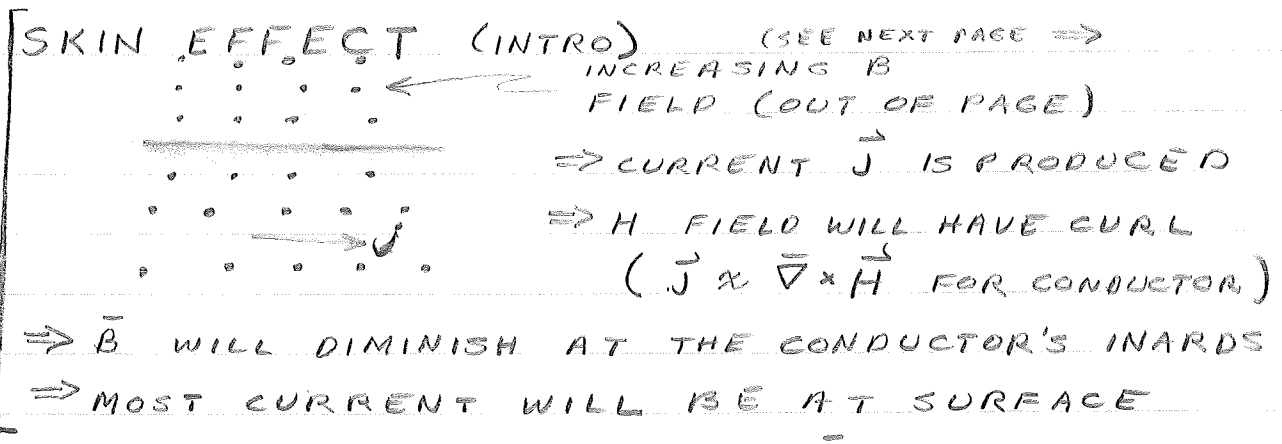 SKIN EFFECT (INTRO) (SEE NEXT PAGE ⇒
INCREASING B
FIELD (OUT OF PAGE)
⇒ CURRENT J⃗ IS PRODUCED
⇒ H FIELD WILL HAVE CURL
J
(J⃗ ≈ ∇̄ × H⃗ FOR CONDUCTOR)
⇒ B̄ WILL DIMINISH AT THE CONDUCTOR'S INARDS
⇒ MOST CURRENT WILL BE AT SURFACE